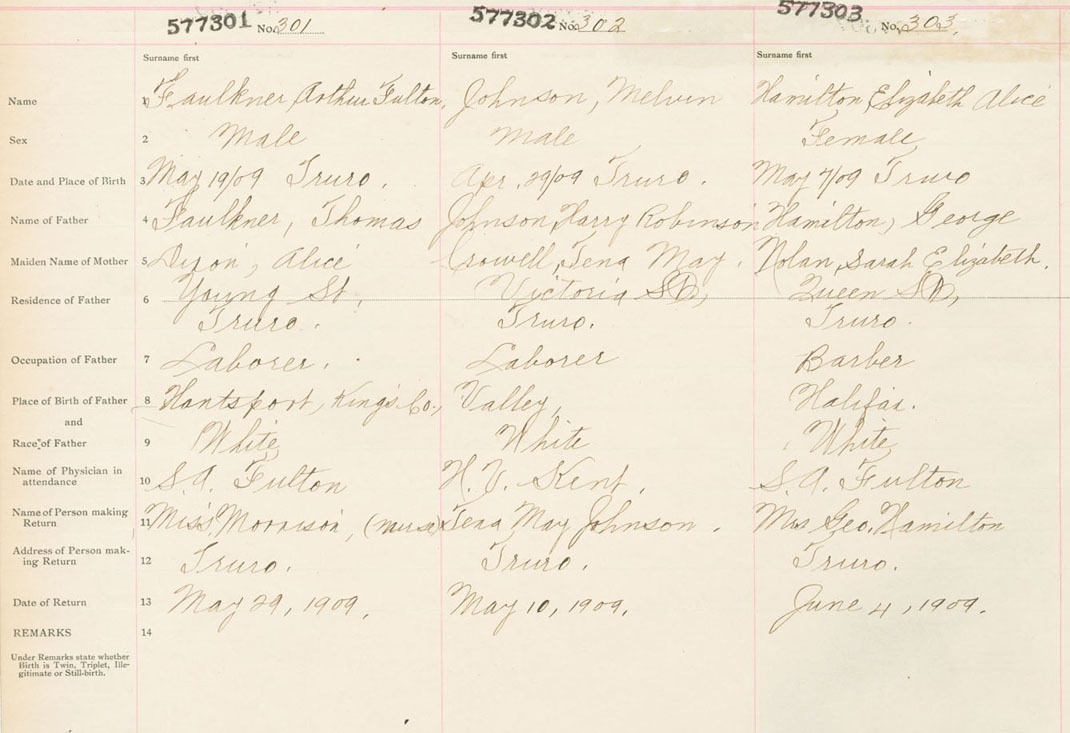 577301 No. 301 577302 No. 302 577303 No. 303.
Surname first Surname first Surname first
Name 1 Faulkner, Arthur Fulton, Johnson, Melvin Hamilton, Elizabeth Alice
Sex 2 Male Male Female
Date and Place of Birth 3 May 19/09 Truro. Apr. 29/09 Truro. May 7/09 Truro
Name of Father 4 Faulkner, Thomas Johnson, Harry Robinson Hamilton, George
Maiden Name of Mother 5 Dixon, Alice Crowell, Tena May. Nolan, Sarah Elizabeth.
Residence of Father 6 Young St, Victoria St, Queen St,
Truro. Truro. Truro.
Occupation of Father 7 Laborer. Laborer Barber
Place of Birth of Father 8 Hantsport, Kings Co., Valley, Halifax.
and
Race of Father 9 White White White
Name of Physician in
attendance 10 S. A. Fulton H. V. Kent, S. A. Fulton
Name of Person making
Return 11 Miss Morrison, (nurse) Tena May Johnson. Mrs Geo. Hamilton
Address of Person mak-
ing Return 12 Truro. Truro. Truro.
Date of Return 13 May 29, 1909, May 10, 1909, June 4, 1909.
REMARKS 14
Under Remarks state whether
Birth is Twin, Triplet, Ille-
gitimate or Still-birth.